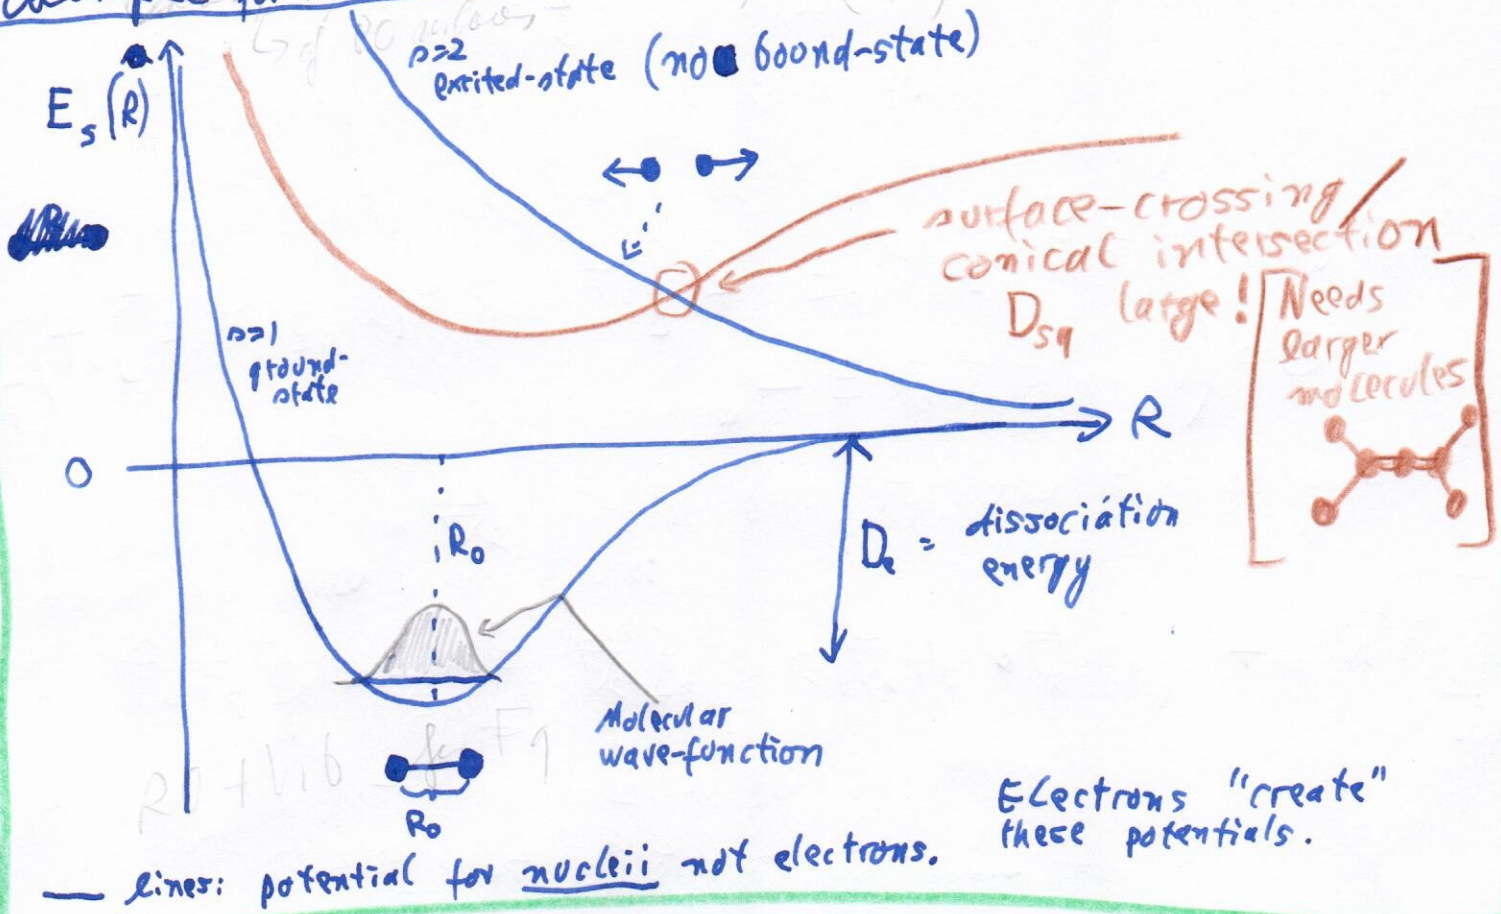 s=2
excited-state (no bound-state)
E_s(R)
surface-crossing/
conical intersection
D_sq large!
Needs
larger
molecules
s=1
ground-
state
R
0
R_0
D_e = dissociátion
energy
Molecular
wave-function
R_0
Electrons "create"
these potentials.
— lines: potential for nucleii not electrons.